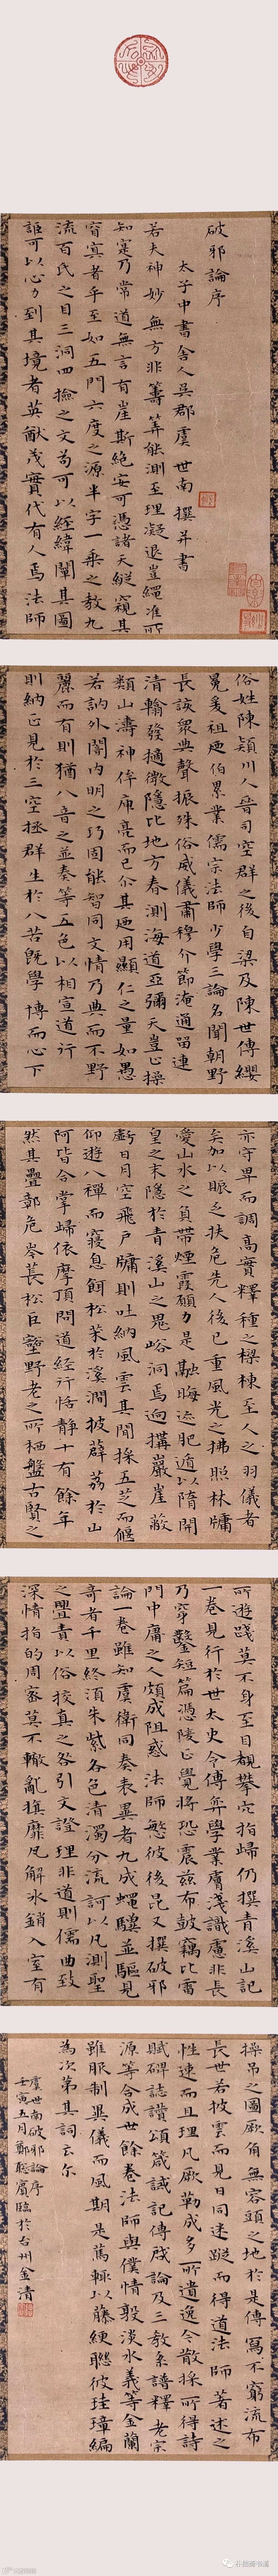 破邪論序
太子中書舍人吳郡虞世南撰并書
若夫神妙無方非籌筭能測至理凝退豈繩准所
知寔乃常道無言有崖斯絕安可憑諸天縱窺其
窅寘者乎至如五門六度之源半字一乘之教九
流百氏之目三洞四撿之文苟可以經緯闡其圖
詎可以心力到其境者英猷茂實代有人焉法師
俗姓陳潁川人晉司空群之後自梁及陳世傳纓
冕爰祖逮伯累業儒宗法師少學三論名聞朝野
長該衆典聲振殊俗威儀肅穆介節淹通留連
清翰發擿微隱比地方春測海道亞彌天豈止操
類山濤神侔庾亮而已尒其廼用顯仁之量如愚
若訥外闇内明之巧固能智同文情乃典而不野
麗而有則猶八音之並奏等五色以相宣道行
則納正見於三空拯群生於八苦既學博而心下
亦守卑而調高實釋種之樑棟至人之羽儀者
矣加以賑乏扶危先人後已重風光之拂照林牖
愛山水之負帶煙霞願力是融晦迹肥遁以隋開
皇之末隱於青溪山之鬼峪洞焉迥搆巖崖蔽
虧日月空飛戶牖則吐納風雲其間採五芝而偃
仰遊八禪而寢息餌松茱於溪澗披薜荔於山
阿皆合掌歸依摩頂問道經行恬靜十有餘年
然其疊鄣危岑長松巨壑野老之所栖盤古賢之
所遊踐莫不身至目覩攀穴指歸仍撰青溪山記
一卷見行於世太史令傅弈學業膚淺識慮非長
乃穿鑿短篇憑陵正覺將恐震茲布鼓竊比雷
門中庸之人頗成阻惑法師慜彼後昆又撰破邪
論一卷雖知虞衛同奏表異者九成蠅驥並驅見
奇者千里終須朱紫各色清濁分流訶以凡測聖
之亹責以俗挍真之咎引文證理非道則儒曲致
深情指的周密莫不轍亂旗靡瓦解冰銷入室有
操吊之圖厥角無容頭之地於是傳寫不窮流布
長世若披雲而見日同迷蹤而得道法師著述之
性速而且理凡厥勒成多所遺逸今散採所得詩
賦碑誌讚頌箴誡記傳啓論及三教系譜釋老宗
源等合成卅餘卷法師與僕情敦淡水義等金蘭
雖服制異儀而風期是篤輒以藤緶聮彼珪璋編
為次第其詞云尒
虞世南破邪論序
壬寅五月鄭聡賓臨於台州金清